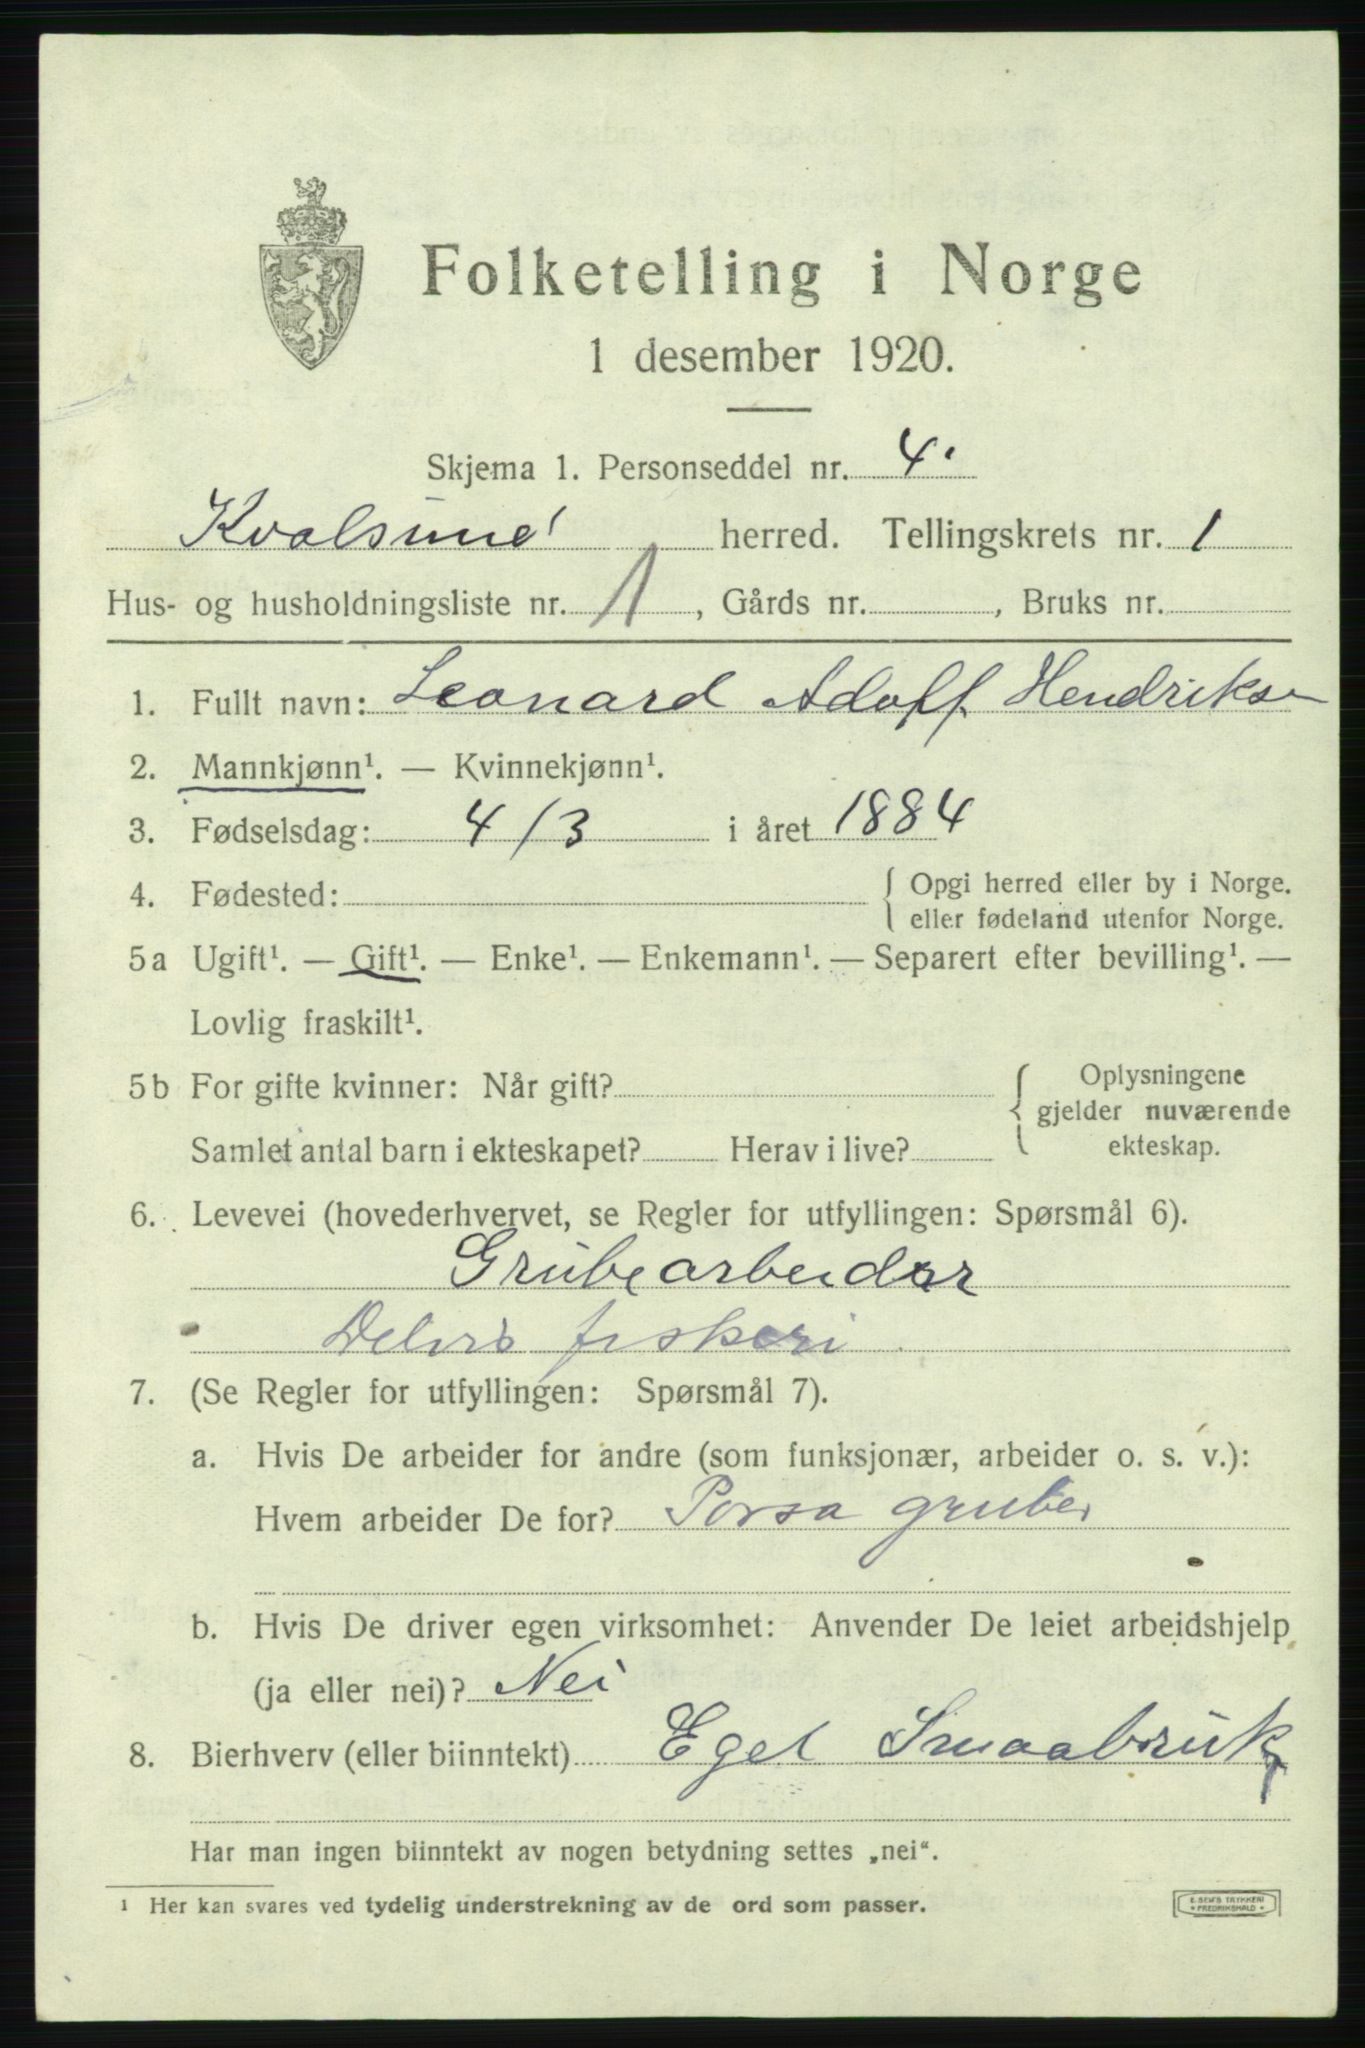 Folketelling i Norge
1 desember 1920.
Skjema 1. Personseddel nr. 4.
Kvalsund herred. Tellingskrets nr. 1
Hus- og husholdningsliste nr. 1, Gårds nr. , Bruks nr.
1. Fullt navn: Leonard Adolf Hendriksen
2. Mannkjønn¹. — Kvinnekjønn¹.
3. Fødselsdag: 4/3 i året 1884
4. Fødested: { Opgi herred eller by i Norge.
eller fødeland utenfor Norge.
5a Ugift¹. — Gift¹. — Enke¹. — Enkemann¹. — Separert efter bevilling¹. —
Lovlig fraskilt¹.
5b For gifte kvinner: Når gift? { Oplysningene
gjelder nuværende
Samlet antal barn i ekteskapet? Herav i live? ekteskap.
6. Levevei (hovederhvervet, se Regler for utfyllingen: Spørsmål 6).
Grubearbeider
Delvis fiskeri
7. (Se Regler for utfyllingen: Spørsmål 7).
a. Hvis De arbeider for andre (som funksjonær, arbeider o. s. v.):
Hvem arbeider De for? Porsa gruber
b. Hvis De driver egen virksomhet: Anvender De leiet arbeidshjelp
(ja eller nei)? Nei
8. Bierhverv (eller biinntekt) Eget Smaabruk
Har man ingen biinntekt av nogen betydning settes „nei“.
¹ Her kan svares ved tydelig understrekning av de ord som passer.
E. SEM'S TRYKKERI
* FREDRIKSHALD *